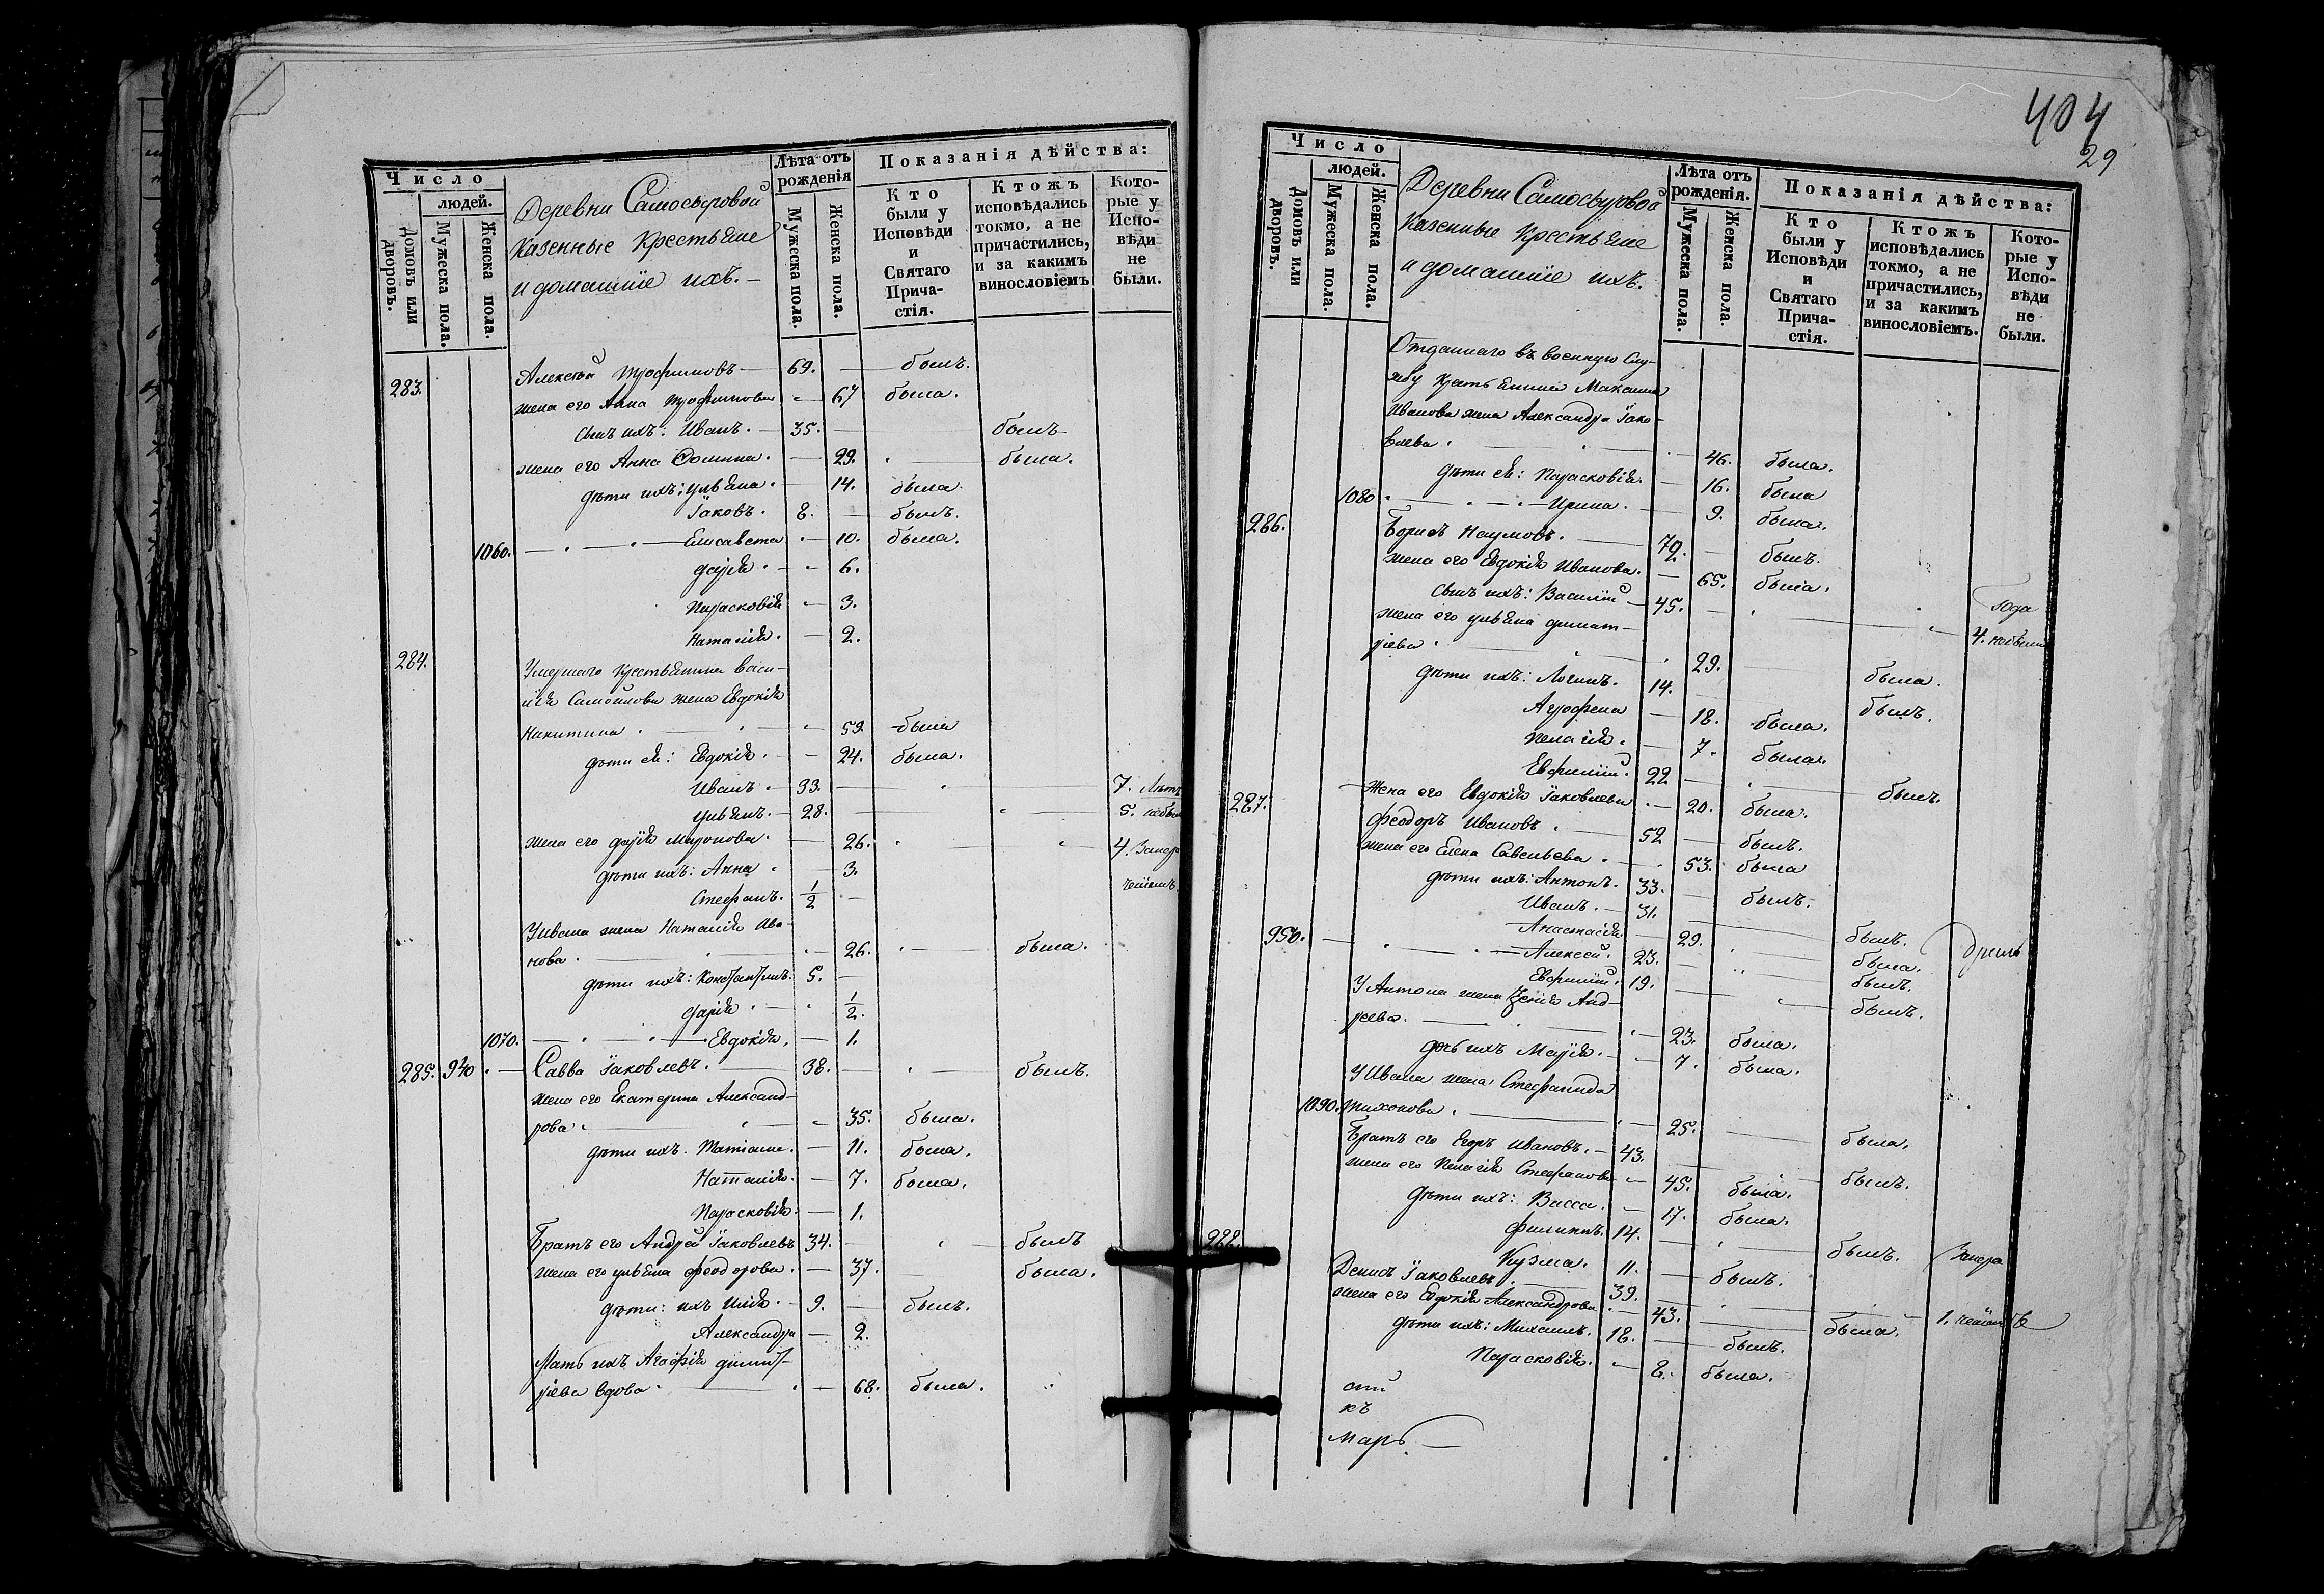 Число
людей.
Домовъ или дворовъ.
Мужеска пола.
Женска пола.
Деревни
Казенные Крестьяне
и домашніе ихъ. —
Лѣта отъ рожденія
Мужеска пола.
Женска пола.
Показанія дѣйства:
Кто были у Исповѣди и Святаго Прича-стія.
Ктожъ исповѣдались токмо, а не причастились, и за какимъ винословіемъ
Кото-рые у Испо-вѣди не были.
283. Алексѣй Трофимовъ — 69. — былъ.
жена его Анна Трофимова — 67 была.
сынъ ихъ: Иванъ. — 35. — былъ
жена его Анна Фомина. — 29. — была.
дѣти ихъ: Ульяна. — 14. была.
Іаковъ. 8. — былъ.
1060. — Елисавета — 10. была.
Дарія. — 6.
Парасковія — 3.
Наталія. — 2.
284. Умершаго Крестьянина Васи-
лія Самойлова жена Евдокія
Никитина. — 59. была
дѣти ея: Евдокія. — 24. была.
Иванъ. 33. — 7. Лѣтъ
Ульянъ. — 28. — 5. небыл
жена его Дарія Миронова. — 26. — 4.
дѣти ихъ: Анна. — 3.
Стефанъ. 1/2 —
У Ивана жена Наталія Ива-
нова. — 26. — была.
дѣти ихъ: Константинъ. 5. —
Дарія. — 1/2.
1070. — Евдокія, — 1.
285. 940. — Савва Іаковлевъ. — 38. — былъ.
жена его Екатерина Александ-
рова. — 35. была.
дѣти ихъ. Татіана. — 11. была.
Наталія. — 7. была.
Парасковія. — 1.
Братъ его Андрей Іаковлевъ 34. — былъ
жена его Ульяна Феодорова. — 37. — была.
дѣти: ихъ Илія. — 9. — былъ.
Александра — 2.
Мать ихъ Агафія Димит-
ріева вдова. — 68. была.
404
29
Число
людей.
Домовъ или дворовъ.
Мужеска пола.
Женска пола.
Деревни
Казенные Крестьяне
и домашніе ихъ.
Лѣта отъ рожденія.
Мужеска пола.
Женска пола.
Показанія дѣйства:
Кто были у Исповѣди и Святаго Прича-стія.
Ктожъ исповѣдались токмо, а не причастились, и за какимъ винословіемъ.
Кото-рые у Испо-вѣди не были.
Отданнаго въ военную слу-
жбу Крестьянина Максима
Иванова жена Александра Іако-
влева. — 46. была.
дѣти ея: Парасковія. — 16. была
1080 — Ирина. — 9. была.
286. Борисъ Наумовъ. — 72. — былъ.
жена его Евдокія Иванова. — 65. была.
сынъ ихъ: Василій — 45. — года
4.
жена его Ульяна Димит-
ріева. — 29. — была.
дѣти ихъ: Логинъ. 14. — былъ.
Агрофена — 18. была.
Пелагія. — 7. была.
Евфимій. 22 — былъ.
жена его Евдокія Іаковлева — 20. была.
287. Феодоръ Ивановъ. — 52 — былъ.
жена его Елена Савельева. — 53. была
дѣти ихъ: Антонъ. 33. — былъ.
Иванъ. — 31. — былъ.
Анастасія — 29. — была.
950. — Алексей. 23. — былъ.
Евфимій. 19. — былъ.
У Антона жена Анд-
реева. — 23. была.
дочь ихъ Марія. — 7. была.
У Ивана жена Стефанида
1090. Тихонова. — 25. — была.
Братъ его Егоръ Ивановъ. — 43. — былъ.
жена его Пелагія Стефанова — 45. была.
дѣти ихъ: Васса. — 17. была.
Филиппъ. 14. — былъ.
Кузма. 11. — былъ.
288. Денисъ Іаковлевъ. — 39. —
жена его Евдокія Александрова. — 43. — была. 1.
дѣти ихъ: Михаилъ. 18. — былъ.
Парасковія. — 8. была.
къ